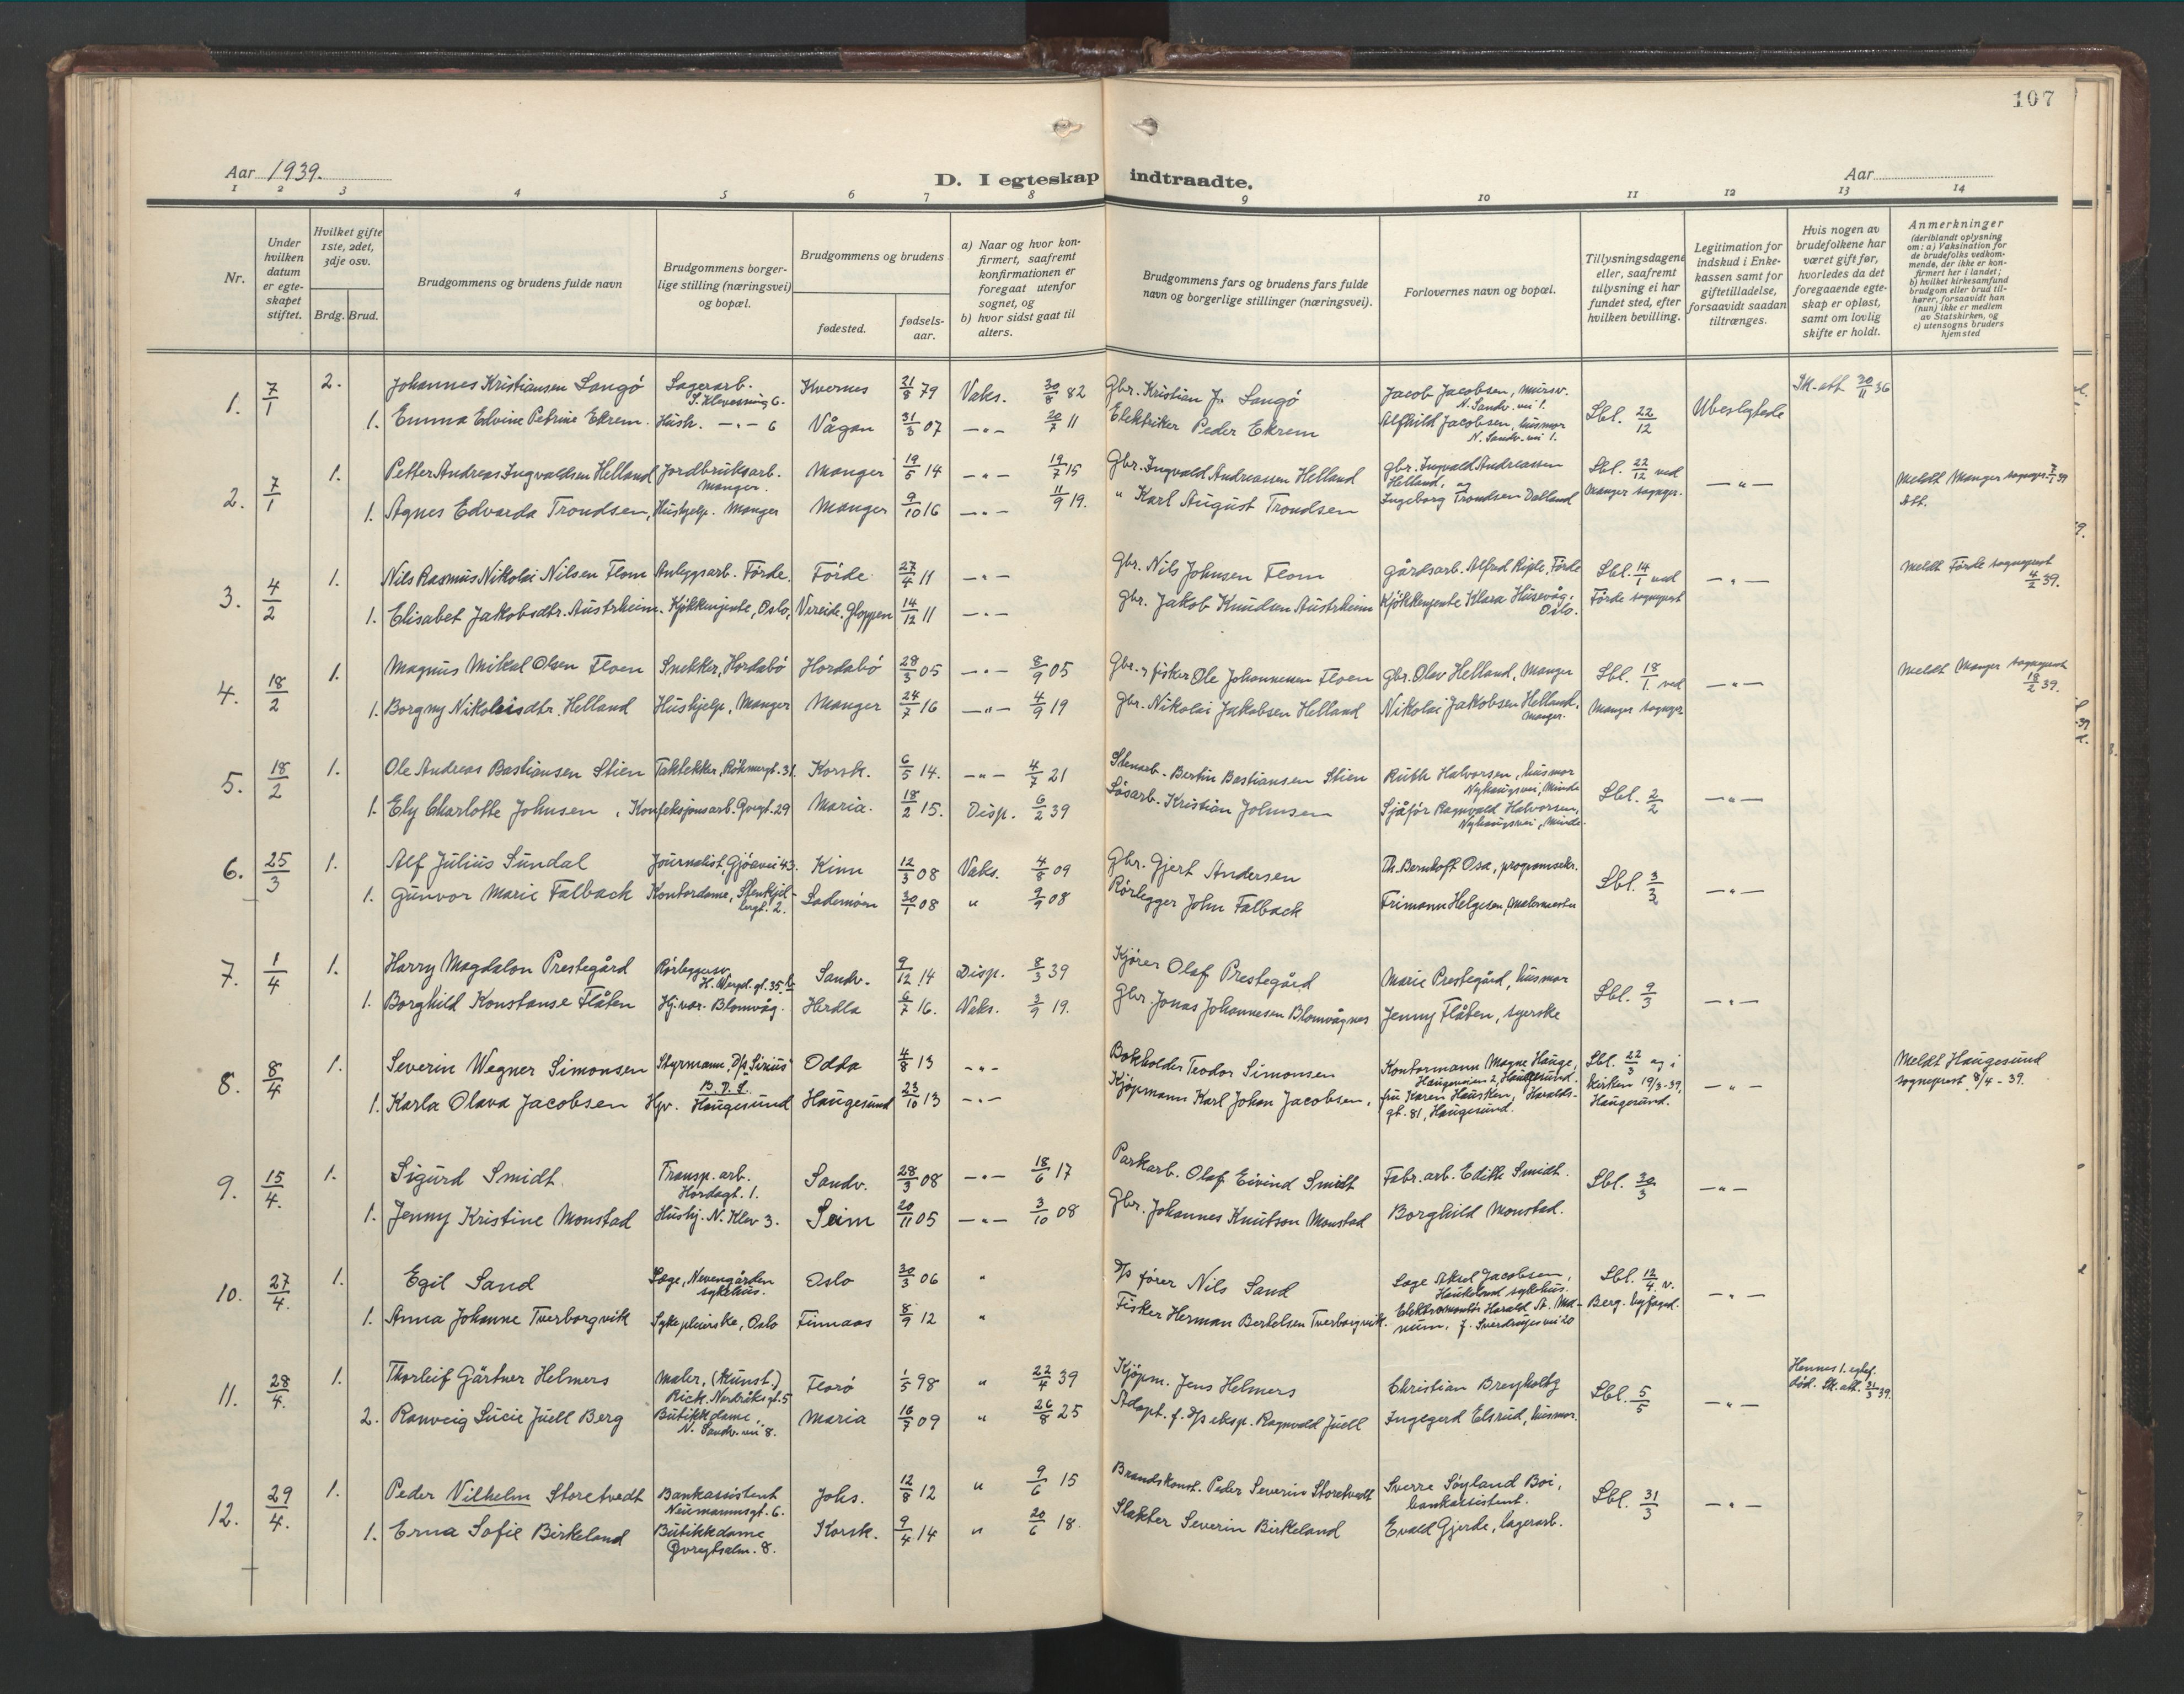 107
Aar 1939.
D. I egteskap indtraadte.
Aar
1 2 3 4 5 6 7 8 9 10 11 12 13 14
Nr.
Under hvilken datum er egte-skapet stiftet.
Hvilket gifte 1ste, 2det, 3dje osv.
Brdg. Brud.
Brudgommens og brudens fulde navn
Brudgommens borger-lige stilling (næringsvei) og bopæl.
Brudgommens og brudens
fødested.
fødsels-aar.
a) Naar og hvor kon-firmert, saafremt konfirmationen er foregaat utenfor sognet, og
b) hvor sidst gaat til alters.
Brudgommens fars og brudens fars fulde navn og borgerlige stillinger (næringsvei).
Forlovernes navn og bopæl.
Tillysningsdagene eller, saafremt tillysning ei har fundet sted, efter hvilken bevilling.
Legitimation for indskud i Enke-kassen samt for giftetilladelse, forsaavidt saadan tiltrænges.
Hvis nogen av brudefolkene har været gift før, hvorledes da det foregaaende egte-skap er opløst, samt om lovlig skifte er holdt.
Anmerkninger (deriblandt oplysning om: a) Vaksination for de brudefolks vedkom-mende, der ikke er kon-firmert her i landet; b) hvilket kirkesamfund brudgom eller brud til-hører, forsaavidt han (hun) ikke er medlem av Statskirken, og c) utensogns bruders hjemsted
1. 7/1 2. Johannes Kristiansen Langö Lagerarb. Kvernes 21/8 79 Vaks. 30/8 82 Gbr. Kristian J. Langö Jacob Jacobsen, mursv. N. Sandv. vei 1. Lbl. 22/12 Ubeslektede Sk. att. 30/11 36
1. Emma Edvine Petrine Ekrem. Hush. -"- 6 Vågan 31/3 07 -"- 20/7 11 Elektriker Peder Ekrem Alfhild Jacobsen, husmor N. Sandv. vei 1.
2. 7/1 1. Petter Andreas Ingvaldsen Helland Jordbruksarb. Manger. Manger 19/5 14 -"- 19/7 15 Gbr. Ingvald Andreassen Helland Gbr. Ingvald Andreassen Helland, og Lbl. 22/12 ved Manger sognepr. -"- Meldt Manger sognepr. 7/1 39 Att.
1. Agnes Edvarda Trondsen, Hushjelp. Manger Manger 9/10 16 -"- 11/9 19. " Karl August Trondsen Ingeborg Trondsen Dalland
3. 4/2 1. Nils Rasmus Nikolai Nilsen Flom Anleggsarb. Förde. Förde 27/4 11 -"- Gbr. Nils Johnsen Flom Gårdsarb. Alfred Riple, Förde Lbl. 14/1 ved Förde sogneprest -"- Meldt Förde sogneprest 4/2 39.
1. Elisabet Jakobsdtr. Austrheim. Kjökkenjente, Oslo, Vereide, Gloppen 14/12 11 -"- Gbr. Jakob Knudsen Austrheim Kjökkenjente Klara Husevåg, Oslo.
4. 18/2 1. Magnus Mikal Olsen Floen Snekker, Hordabö Hordabö 28/3 05 -"- 8/9 05 Gbr. og fisker Ole Johannessen Floen Gbr. Olav Helland, Manger Lbl. 18/1 ved Manger sognepr -"- Meldt Manger sogneprest 18/2 39.
1. Borgny Nikolaisdtr. Helland Hushjelp, Manger Manger 24/7 16 -"- 4/9 19 Gbr. Nikolai Jakobsen Helland Nikolai Jakobsen Helland, Manger.
5. 18/2 1. Ole Andreas Bastiansen Stien Taktekker, 31 Korsk. 6/5 14. -"- 4/7 21 Stenarb. Bertin Bastiansen Stien Ruth Halvorsen, husmor Nyhaugsvei, Minde Lbl. 2/2 -"-
1. Ely Charlotte Johnsen, Konfeksjonsarb. 29 Maria. 18/2 15. Disp. 6/2 39 Lösarb. Kristian Johnsen Sjåför Ragnvald Halvorsen, Nyhaugsvei, Minde.
6. 25/3 1. Alf Julius Sundal Journalist, Gjöavei 43. Kinn 12/3 08 Vaks. 4/8 09 Gbr. Gjert Andersen Th. Bernhoft Osa, programsekr. Lbl. 3/3 -"-
1. Gunvor Marie Falback Kontordame, Sademoen 30/1 08 " 9/9 08 Rörlegger John Falback Frimann Helgesen, Malermester
7. 1/4 1. Harry Magdalon Prestegård Rörleggersv. H. Wergel. gt. 35. b Sandv. 9/12 14 Disp. 8/3 39 Kjörer Olaf Prestegård Marie Prestegård, husmor Lbl. 9/3 -"-
1. Borghild Konstanse Flåten Hj. vær. Blomvåg. Herdla 6/7 16. Vaks. 3/9 19. Gbr. Jonas Johannesen Blomvågnes Jenny Flåten, syerske
8. 8/4 1. Severin Wegner Simonsen Styrmann, D/s Sirius B.D.S. Odda 4/8 13 -"- Bokholder Teodor Simonsen Kontormann Magne Hauge, Haugesund. Lbl. 22/3 og i kirken 19/3-39, Haugesund. -"- Meldt Haugesund sogneprest 8/4 - 39.
1. Karla Olava Jacobsen Hpv. Haugesund Haugesund 23/10 13 -"- Kjöpmann Karl Johan Jacobsen, fru Karen Hausken, Haralds-gt. 81, Haugesund.
9. 15/4. 1. Sigurd Smidt. Transp. arb. Hordagt. 1. Sandv. 28/3 08 -"- 18/6 17 Parkarb. Olaf Eivind Smidt Fabr. arb. Edith Smidt. Lbl. 30/3 -"-
1. Jenny Kristine Monstad Hushj. N. Klev 3. Seim 20/11 05 -"- 3/10 08 Gbr. Johannes Knutson Monstad Borghild Monstad.
10. 27/4. 1. Egil Sand Læge, Nevengården sykehus. Oslo 30/3 06 " D/s förer Nils Sand Læge Aksel Jacobsen, Haukeland sykehus. Lbl. 12/4 v. Berg. byfogd. -"-
1. Anna Johanne Tverborgvik Sykepleierske, Oslo Finnaas 8/9 12 " Fisker Herman Bertelsen Tverborgvik. Elektromontör Harald
11. 28/4. 1. Thorleif Gärtner Helmers Maler, (Kunst.) Rick. Nordråks gt. 5 Florö 1/5 98 " 22/4 39 Kjöpm. Jens Helmers Christian Breyholtz Lbl. 5/5 -"- Hennes 1. egtef. död. Sk. att. 31/3 39.
2. Ranveig Lucie Juell Berg Butikkdame, N. Sandv. vei 8. Maria 16/7 09 " 26/8 25 Adopt. f. D/s eksp. Ragnvald Juell Ingegerd Elsrud, husmor.
12. 29/4. 1. Peder Vilhelm Storetvedt Bankassistent Neumannsgt. 6. Johs. 12/8 12 " 9/6 15 Brandskonst. Peder Severin Storetvedt Sverre Söyland Boi, bankassistent. Lbl. 31/3 -"-
1. Erna Sofie Birkeland Butikkdame Korsk. 9/4 14 " 20/6 18. Slakter Severin Birkeland Evald Gjerde, lagerarb.